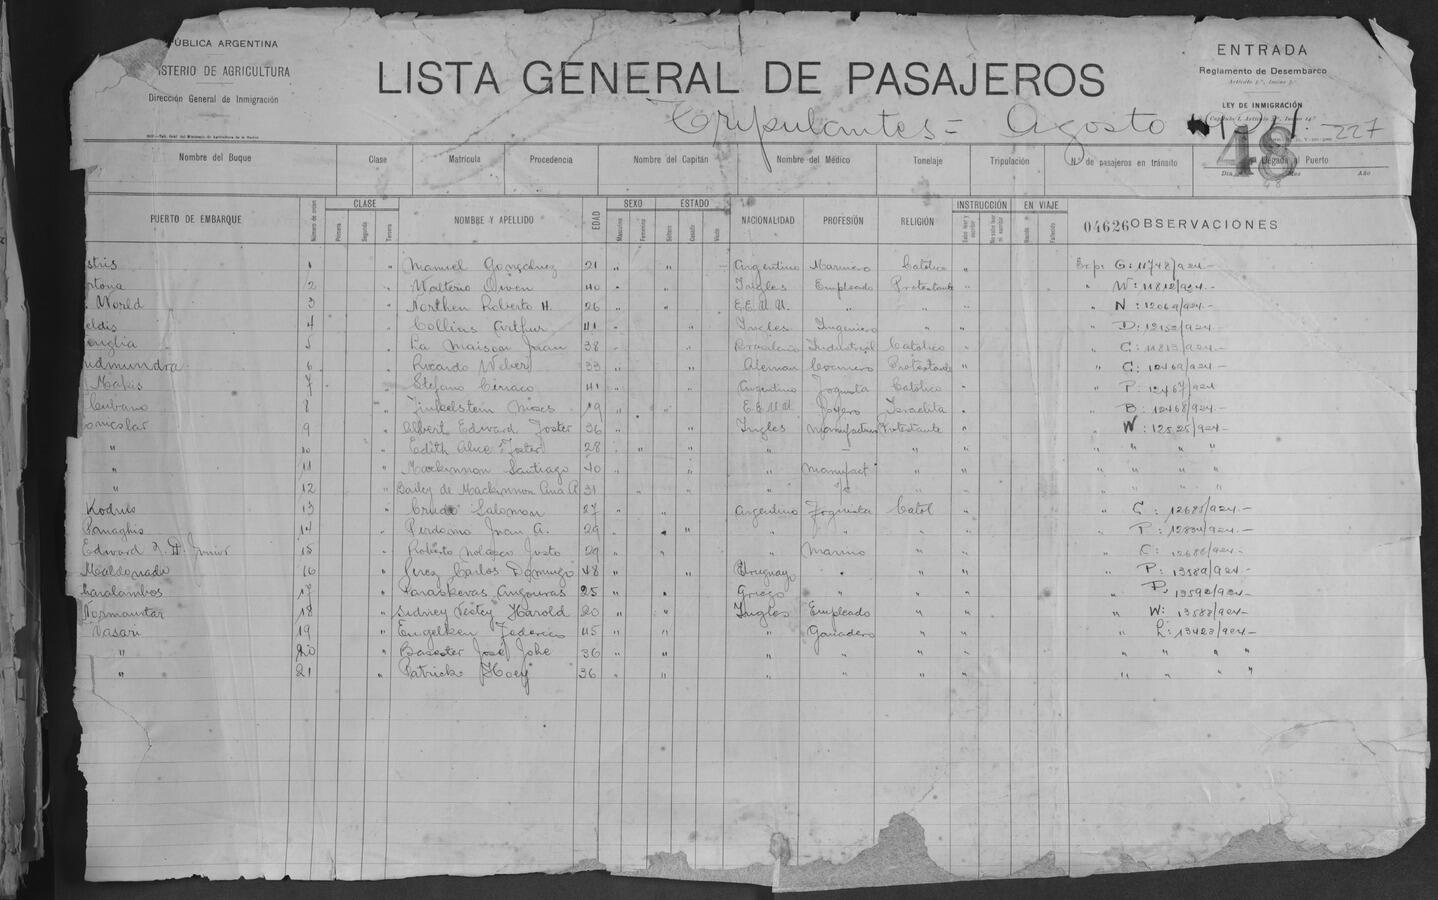 PÚBLICA ARGENTINA
ISTERIO DE AGRICULTURA
Dirección General de Inmigración
LISTA GENERAL DE PASAJEROS
Tripulantes = Agosto
ENTRADA
Reglamento de Desembarco
LEY DE INMIGRACIÓN
227
48
Nombre del Buque Clase Matrícula Procedencia Nombre del Capitán Nombre del Médico Tonelaje Tripulación N.° de pasajeros en tránsito Llegada al Puerto
Día Mes Año
PUERTO DE EMBARQUE Número de orden CLASE Primera Segunda Tercera NOMBRE Y APELLIDO EDAD SEXO Masculino Femenino ESTADO Soltero Casado Viudo NACIONALIDAD PROFESIÓN RELIGIÓN INSTRUCCIÓN Sabe leer y escribir No sabe leer ni escribir EN VIAJE 04626 OBSERVACIONES
stris 1 " Manuel 21 " " Argentino Marinero Católico " Exp: G: 11748/924.-
rtona 2 " Walterio Owen 40 " " Ingles Empleado Protestante " " W: 11812/924.-
World 3 " Northen Roberto H. 26 " " E.E.U.U. " " " " N: 12069/924.-
eldis 4 " Collins Arthur 41 " " Ingles Ingeniero " " " D: 12152/924.-
5 " La Maison Juan 38 " " Brasileño Industrial Católico " " C: 11813/924.-
udmundra 6 " Ricardo Weber 33 " " Aleman Cocinero Protestante " " G: 12469/924.-
Makis 7 " Stefano Ciriaco 41 " " Argentino Fogonista Católico " " P: 12467/924
Cubano 8 " Finkelstein Moises 19 " " E.E.U.U. Joyero Israelita " " B: 12468/924.-
9 " Albert Edward Foster 36 " " Ingles Manufactura Protestante " " W: 12525/924.-
" 10 " Edith Alice Foster 28 " " " — " " " " " "
" 11 " Mackinnon Santiago 40 " " " Manufact " " " " " "
" 12 " Bailey de Mackinnon Ana A 31 " " " " " " " " "
Kodros 13 " Crudo Salomon 27 " " Argentino Fogonista Catol " " C: 12685/924.-
Panaghis 14 " Perdomo Juan A. 29 " " " " " " " P: 12834/924.-
Edward Junior 15 " Roberto Nolasco Justo 29 " " " Marino " " " C: 12688/924.-
Maldonado 16 " Jerez Carlos Domingo 48 " " Uruguayo " " " " P: 13589/924.-
aralambos 17 " Paraskevas 25 " " Griego " " " " P: 13592/924.-
18 " Sidney Harold 20 " " Ingles Empleado " " " W: 13588/924.-
Vasari 19 " Engelken Federico 45 " " " Ganadero " " " L: 13423/924.-
" 20 " José John 36 " " " " " " " " " "
" 21 " Patrick Hoey 36 " " " " " " " " " "